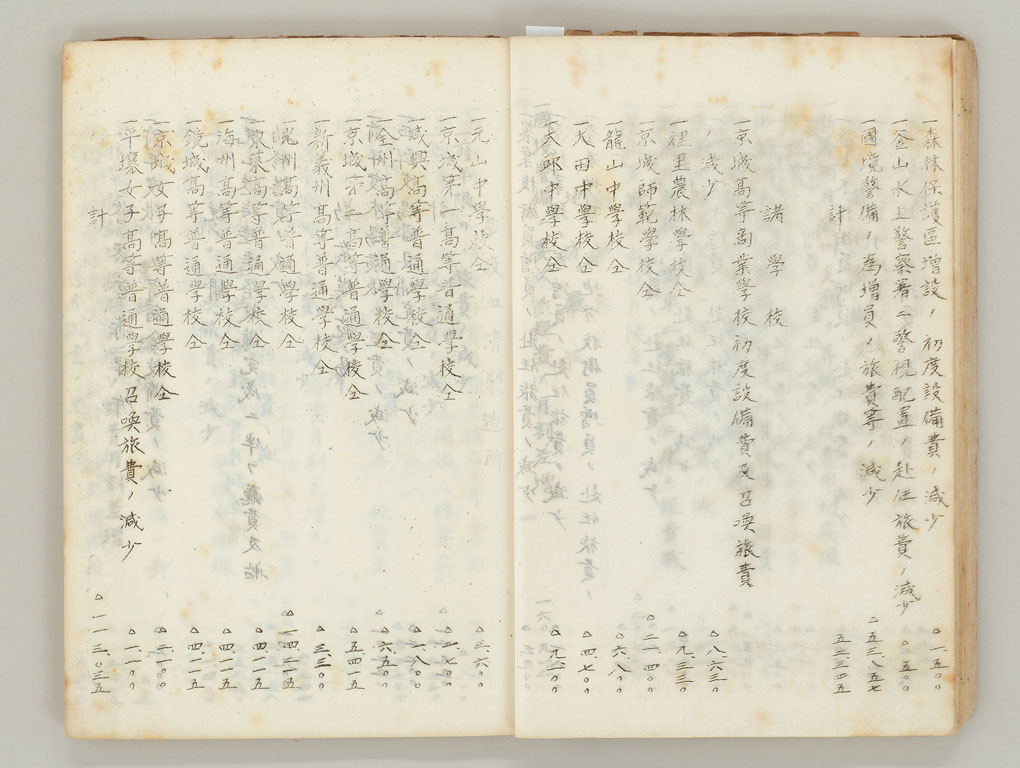 一森林保護區増設ノ初度設備費ノ減少 △一.五〇〇
一釜山水上警察署ニ警視配置ノ赴任旅費ノ減少 △.五〇〇
一國境警備ノ為増員ノ旅費等ノ減少 △五三.八五七
計 五三三四五
諸學校
一京城高等商業學校初度設備費及召喚旅費
ノ減少 △八.六三〇
一裡里農林學校仝 △九.三三〇
一京城師範學校仝 △二一.四〇〇
一龍山中學校仝 △六.八〇〇
一大田中學校仝 △四.七〇〇
一大邱中學校仝
一元山中學校仝 △三.六〇〇
一京城第一高等普通學校仝 △二.七〇〇
一咸興高等普通學校仝 △一.八〇〇
一全州高等普通學校仝 △六.五〇〇
一京城第二高等普通學校仝 △五四一五
一新義州高等普通學校仝 △三.三〇〇
一光州高等普通學校仝 △一四.二一五
一東萊高等普通學校仝 △四一一五
一海州高等普通學校仝 △四一一五
一鏡城高等普通學校仝 △四一一五
一京城女子高等普通學校仝 △二.一〇〇
一平壤女子高等普通學校召喚旅費ノ減少 △一.一〇〇
計 △一一三.〇三五